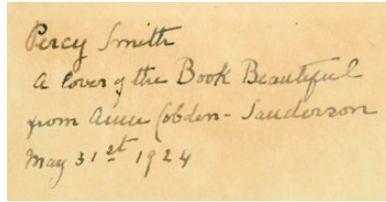 Percy Smith
a lover of the Book Beautiful
from Anne Cobden-Sanderson
May 31st 1924